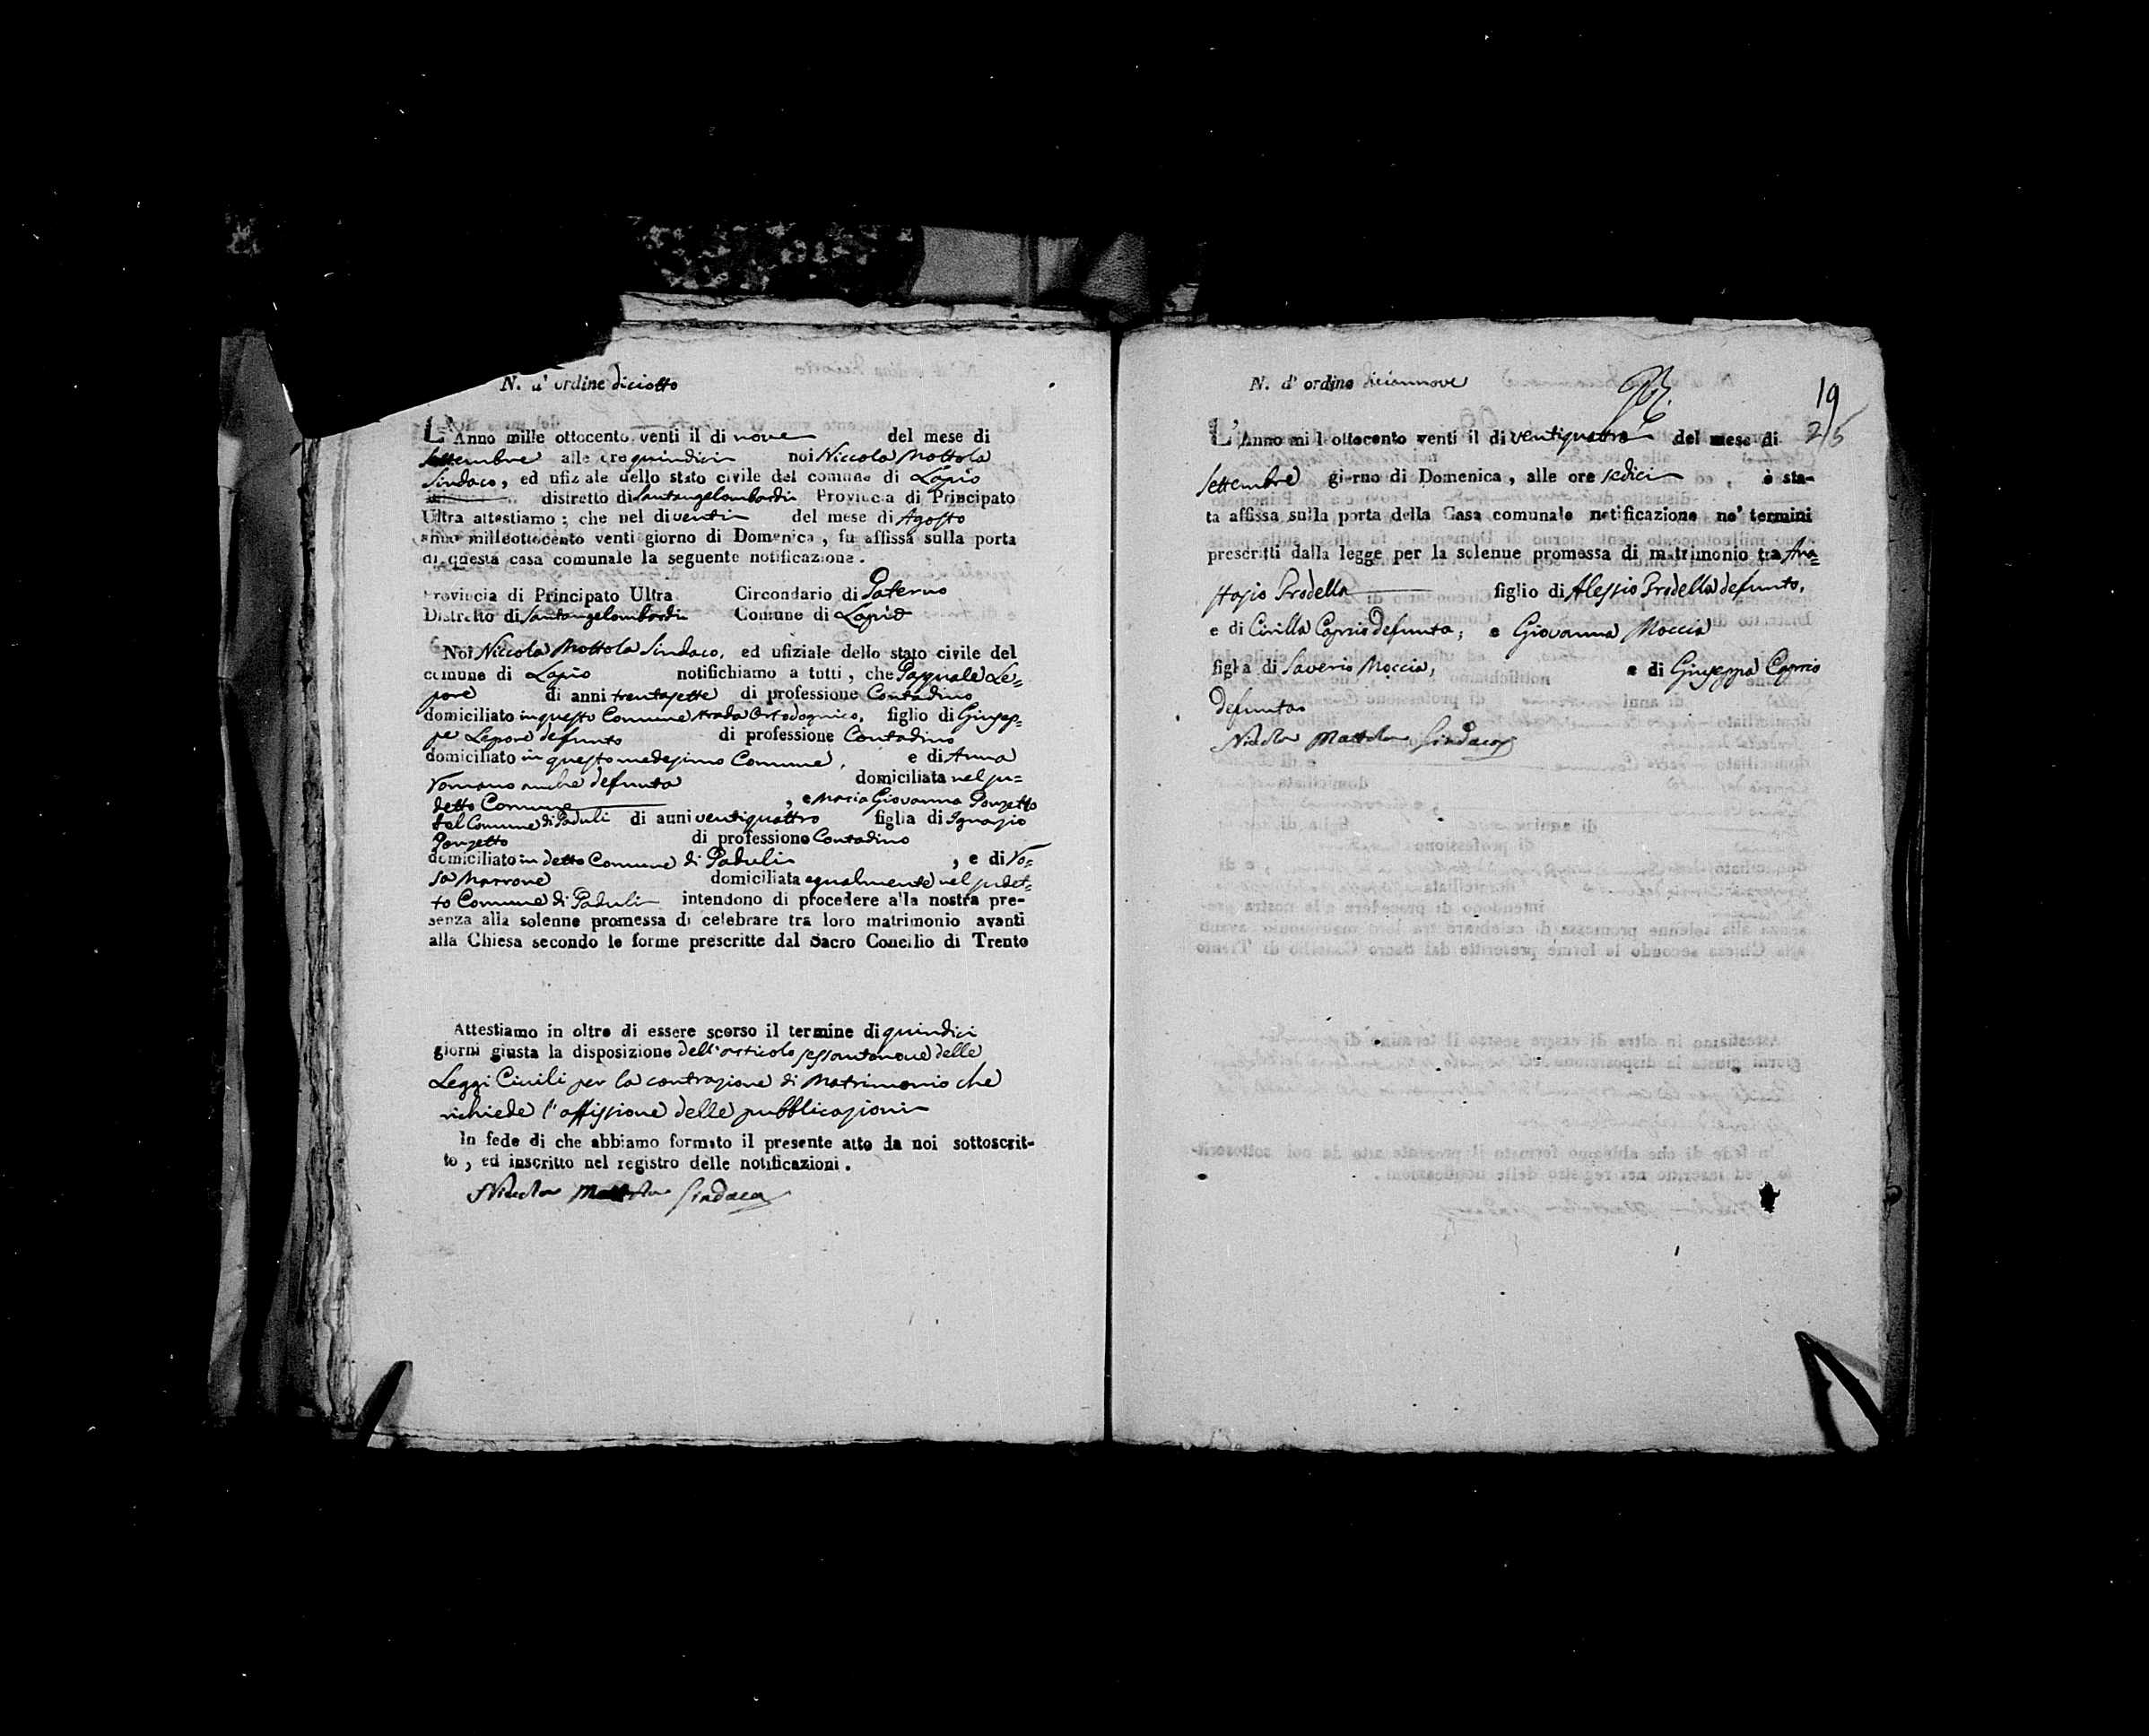 N. d' ordine diciotto
L'Anno mille ottocento venti il di nove del mese di
settembre alle ore quindici noi Niccola Mottola
Sindaco, ed ufiziale dello stato civile del comune di Lapio
distretto di Santangelombardi Provincia di Principato
Ultra attestiamo; che nel di venti del mese di Agosto
anno milleottocento venti giorno di Domenica, fu affissa sulla porta
di questa casa comunale la seguente notificazione.
Provincia di Principato Ultra Circondario di Paterno
Distretto di Santangelombardi Comune di Lapio
Noi Niccola Mottola Sindaco, ed ufiziale dello stato civile del
comune di Lapio notifichiamo a tutti, che Pasquale Le=
pore di anni trentasette di professione Contadino
domiciliato in questo Comune strada Ortodognico, figlio di Giusep=
pe Lepore defunto di professione Contadino
domiciliato in questo medesimo Comune, e di Anna
Romano anche defunta domiciliata nel su=
detto Comune, e Maria Giovanna Ponzetto
del Comune di Paduli di anni ventiquattro figlia di Ignazio
Ponzetto di professione Contadino
domiciliato in detto Comune di Paduli, e di Ro=
sa Marrone domiciliata egualmente nel sudet=
to Comune di Paduli intendono di procedere alla nostra pre-
senza alla solenne promessa di celebrare tra loro matrimonio avanti
alla Chiesa secondo le forme prescritte dal Sacro Concilio di Trento
Attestiamo in oltre di essere scorso il termine di quindici
giorni giusta la disposizione dell'articolo sessantanove delle
Leggi Civili per la contrazione di Matrimonio che
richiede l'affissione delle pubblicazioni
In fede di che abbiamo formato il presente atto da noi sottoscrit-
to, ed inscritto nel registro delle notificazioni.
Niccola Mottola Sindaco
N. d' ordine diciannove
19
2/5
L'Anno mille ottocento venti il di ventiquattro del mese di
Settembre giorno di Domenica, alle ore sedici è sta-
ta affissa sulla porta della Casa comunale notificazione ne' termini
prescritti dalla legge per la solenne promessa di matrimonio tra Ana=
stasio Prodella figlio di Alessio Prodella defunto,
e di Cirilla Caprio defunta; e Giovanna Moccia
figlia di Saverio Moccia, e di Giuseppa Caprio
defunta
Niccola Mottola Sindaco